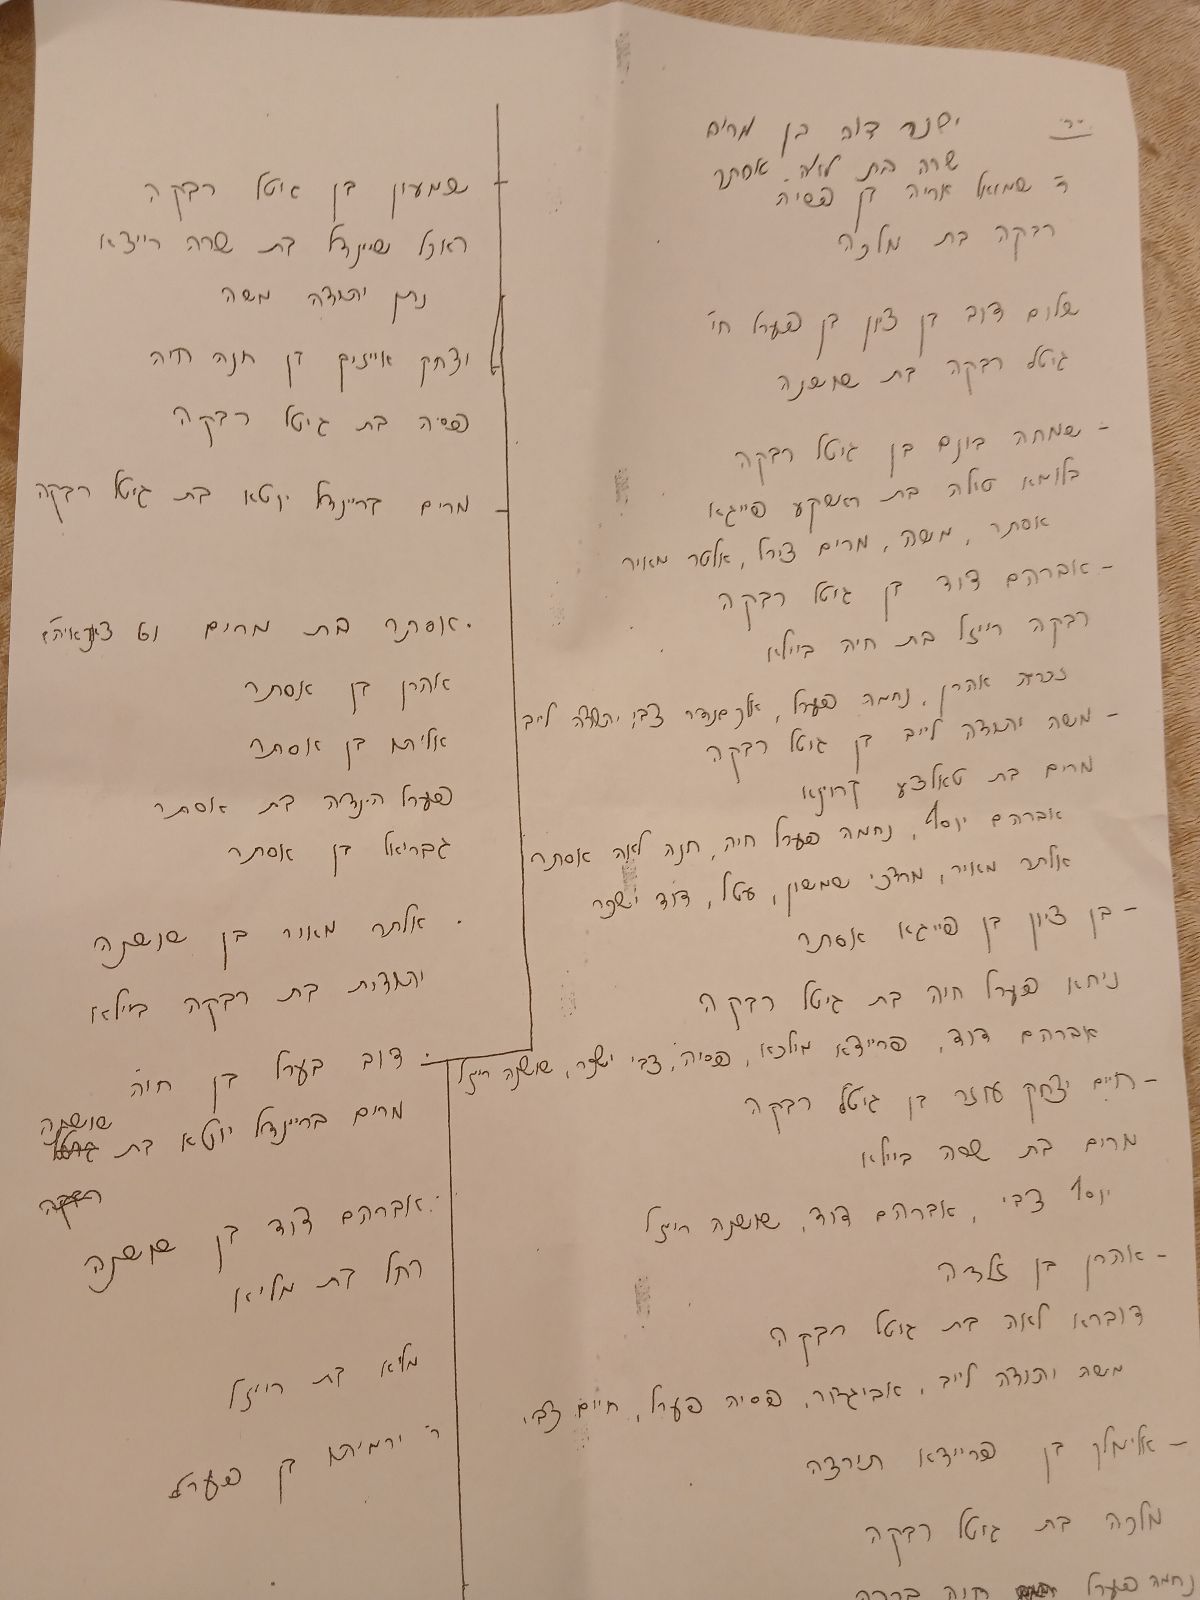 ישכר דוב בן מרים
שרה בת לאה אסתר
ר' שמואל אריה בן פסיה
רבקה בת מלכה
שלום דוב בן ציון בן פערל חי'
גיטל רבקה בת שושנה
- שמחה בונם בן גיטל רבקה
בלומא סאלה בת ראשקע פייגא
אסתר, משה, מרים צירל, אלטר מאיר
- אברהם דוד בן גיטל רבקה
רבקה רייזל בת חיה ביילא
זכריה אהרן, נחמה פערל, אלכסנדר צבי, יהודה לייב
- משה יהודה לייב בן גיטל רבקה
מרים בת טאלצע קרוינא
אברהם יוסף, נחמה פערל חיה, חנה לאה אסתר
אלתר מאיר, מרדכי שמשון, עטל, דוד ישכר
- בן ציון בן פייגא אסתר
ניחא פערל חיה בת גיטל רבקה
אברהם דוד, פריידא מילכא, פסיה, צבי ישכר, שושנה רייזל
- חיים יצחק עוזר בן גיטל רבקה
מרים בת שסה ביילא
יוסף צבי, אברהם דוד, שושנה רייזל
- אהרן בן אלדה
דובראו לאה בת גיטל רבקה
משה יהודה לייב, אביגדור, פסיה פערל, חיים צבי,
- אלימלך בן פריידא תירצה
מלכה בת גיטל רבקה
נחמה פערל חנה ברכה
שמעון בן גיטל רבקה
ראכל שיינדל בת שרה רייצא
נתן יהודה משה
יצחק אייזיק בן חנה חיה
פסיה בת גיטל רבקה
מרים בריינדל יוטא בת גיטל רבקה
· אסתר בת מרים
אהרן בן אסתר
אליהו בן אסתר
פערל הינדה בת אסתר
גבריאל בן אסתר
· אלתר מאיר בן שושנה
יהודית בת רבקה ביילא
· דוב בערל בן חיה
מרים בריינדל יוטא בת שושנה
· אברהם דוד בן שושנה
רחל בת מליא
מליא בת רייזל
ר' ירמיהו בן פערל